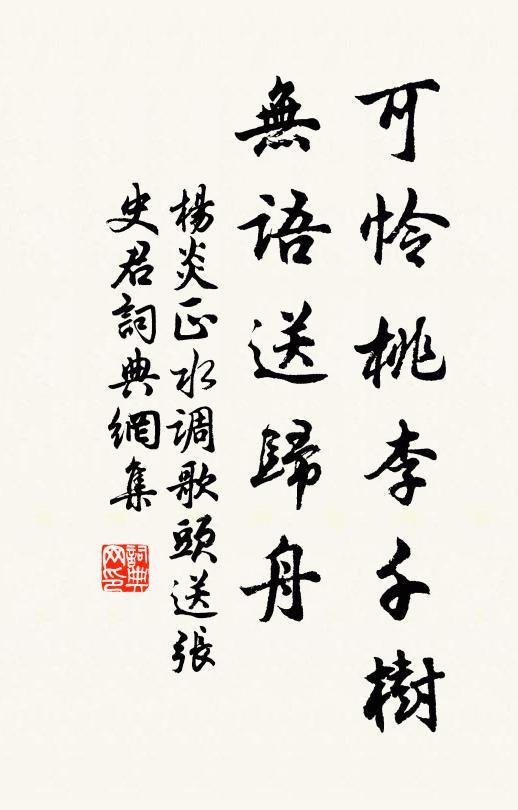 可怜桃李千樹
無語送歸舟
楊炎正水调歌頭送張
史君詞典網集
詞典网印